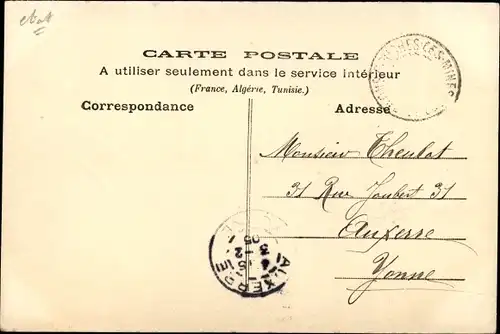 CARTE POSTALE
A utiliser seulement dans le service intérieur
(France, Algérie, Tunisie.)
Correspondance
Adresse
Monsieur Theulot
31 Rue Joubert 31
Auxerre
Yonne
AUXERRE